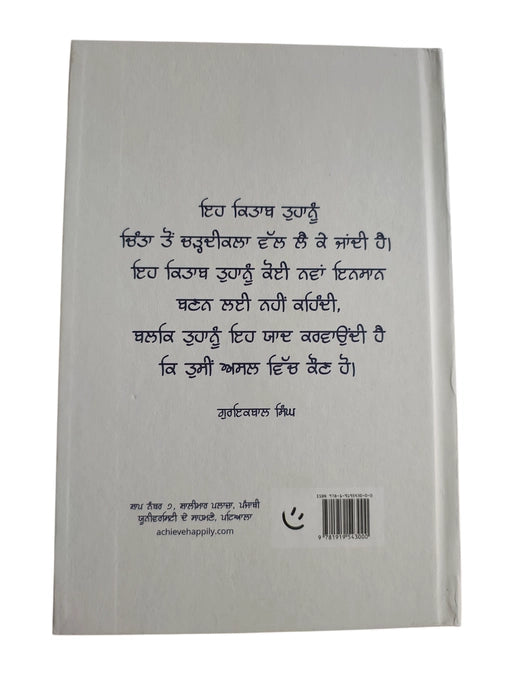 ਇਹ ਕਿਤਾਬ ਤੁਹਾਨੂੰ
ਚਿੰਤਾ ਤੋਂ ਚੜ੍ਹਦੀਕਲਾ ਵੱਲ ਲੈ ਕੇ ਜਾਂਦੀ ਹੈ।
ਇਹ ਕਿਤਾਬ ਤੁਹਾਨੂੰ ਕੋਈ ਨਵਾਂ ਇਨਸਾਨ
ਬਣਨ ਲਈ ਨਹੀਂ ਕਹਿੰਦੀ,
ਬਲਕਿ ਤੁਹਾਨੂੰ ਇਹ ਯਾਦ ਕਰਵਾਉਂਦੀ ਹੈ
ਕਿ ਤੁਸੀਂ ਅਸਲ ਵਿੱਚ ਕੌਣ ਹੋ।
ਗੁਰਇਕਬਾਲ ਸਿੰਘ
ਸ਼ਾਪ ਨੰਬਰ ੭, ਸ਼ਾਲੀਮਾਰ ਪਲਾਜ਼ਾ, ਪੰਜਾਬੀ
ਯੂਨੀਵਰਸਿਟੀ ਦੇ ਸਾਹਮਣੇ, ਪਟਿਆਲਾ
achievehappily.com
9 781919 543000